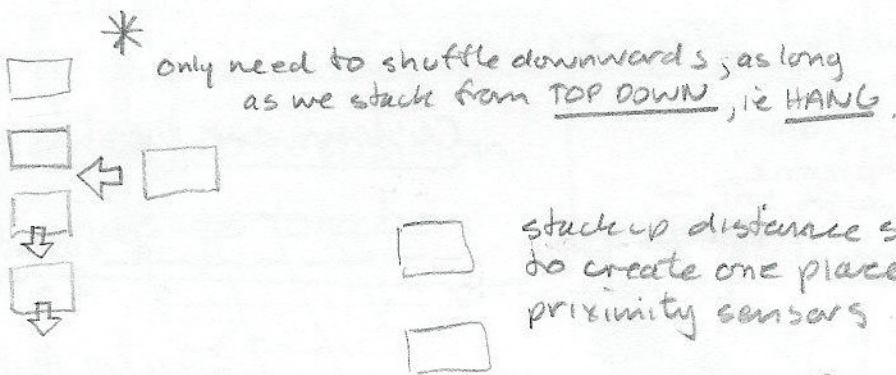 only need to shuffle downwards; as long
as we stack from TOP DOWN, ie HANG.
stack up distance s
to create one place
priximity sensors